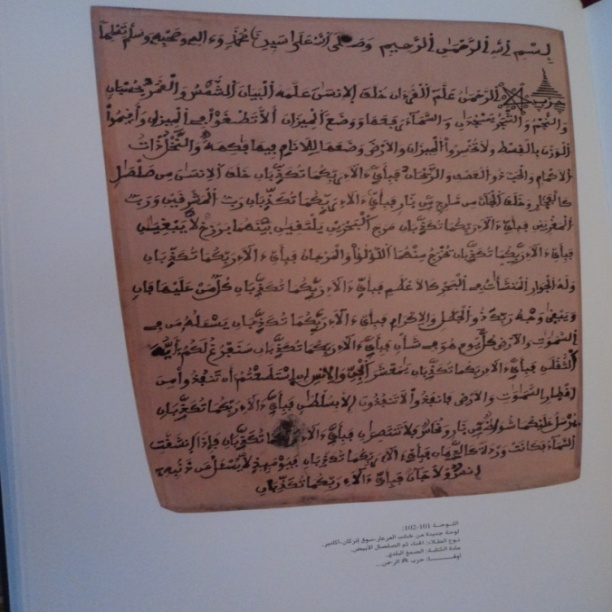 بسم الله الرحمن الرحيم وصلى الله على سيدنا محمد وءاله وصحبه وسلم تسليما
حزب الرحمن علم القرءان خلق الإنسن علمه البيان الشمس والقمر بحسبان
والنجم والشجر يسجدان والسماء رفعها ووضع الميزان ألا تطغوا في الميزان وأقيموا
الوزن بالقسط ولا تخسروا الميزان والارض وضعها للانام فيها فكهة والنخل ذات
الاكمام والحب ذو العصف والريحان فبأي ءالاء ربكما تكذبان خلق الإنسن من صلصل
كالفخار وخلق الجان من مارج من نار فبأي ءالاء ربكما تكذبان رب المشرقين ورب
المغربين فبأي ءالاء ربكما تكذبان مرج البحرين يلتقين بينهما برزخ لا يبغين
فبأي ءالاء ربكما تكذبان يخرج منهما اللؤلؤا والمرجان فبأي ءالاء ربكما تكذبان
وله الجوار المنشئات في البحر كالاعلم فبأي ءالاء ربكما تكذبان كل من عليها فان
ويبقى وجه ربك ذو الجلل والإكرام فبأي ءالاء ربكما تكذبان يسءله من في
السموت والارض كل يوم هو في شأن فبأي ءالاء ربكما تكذبان سنفرغ لكم أيه
الثقلن فبأي ءالاء ربكما تكذبان يمعشر الجن والإنس إن استطعتم أن تنفذوا من
اقطار السموت والارض فانفذوا لا تنفذون إلا بسلطن فبأي ءالاء ربكما تكذبان
يرسل عليكما شواظ من نار ونحاس فلا تنتصران فبأي ءالاء ربكما تكذبان فإذا انشقت
السماء فكانت وردة كالدهان فبأي ءالاء ربكما تكذبان فيومئذ لا يسءل عن ذنبه
إنس ولا جان فبأي ءالاء ربكما تكذبان
اللوحة 101-102:
لوحة جديدة من خشب العرعار
نوع الطلاء: الصلصال الأبيض
مادة الكتابة: الصمغ البلدي